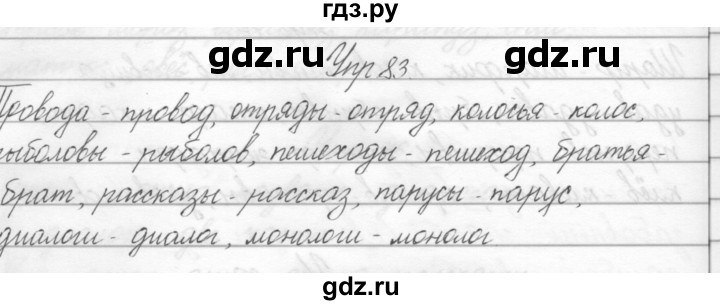 гдз.ру
gdz.ru gdz.ru
Упр 83
Провода - провод, отряды - отряд, колосья - колос,
рыболовы - рыболов, пешеходы - пешеход, братья -
брат, рассказы - рассказ, парусы - парус,
диалоги - диалог, монологи - монолог
gdz.ru gdz.ru